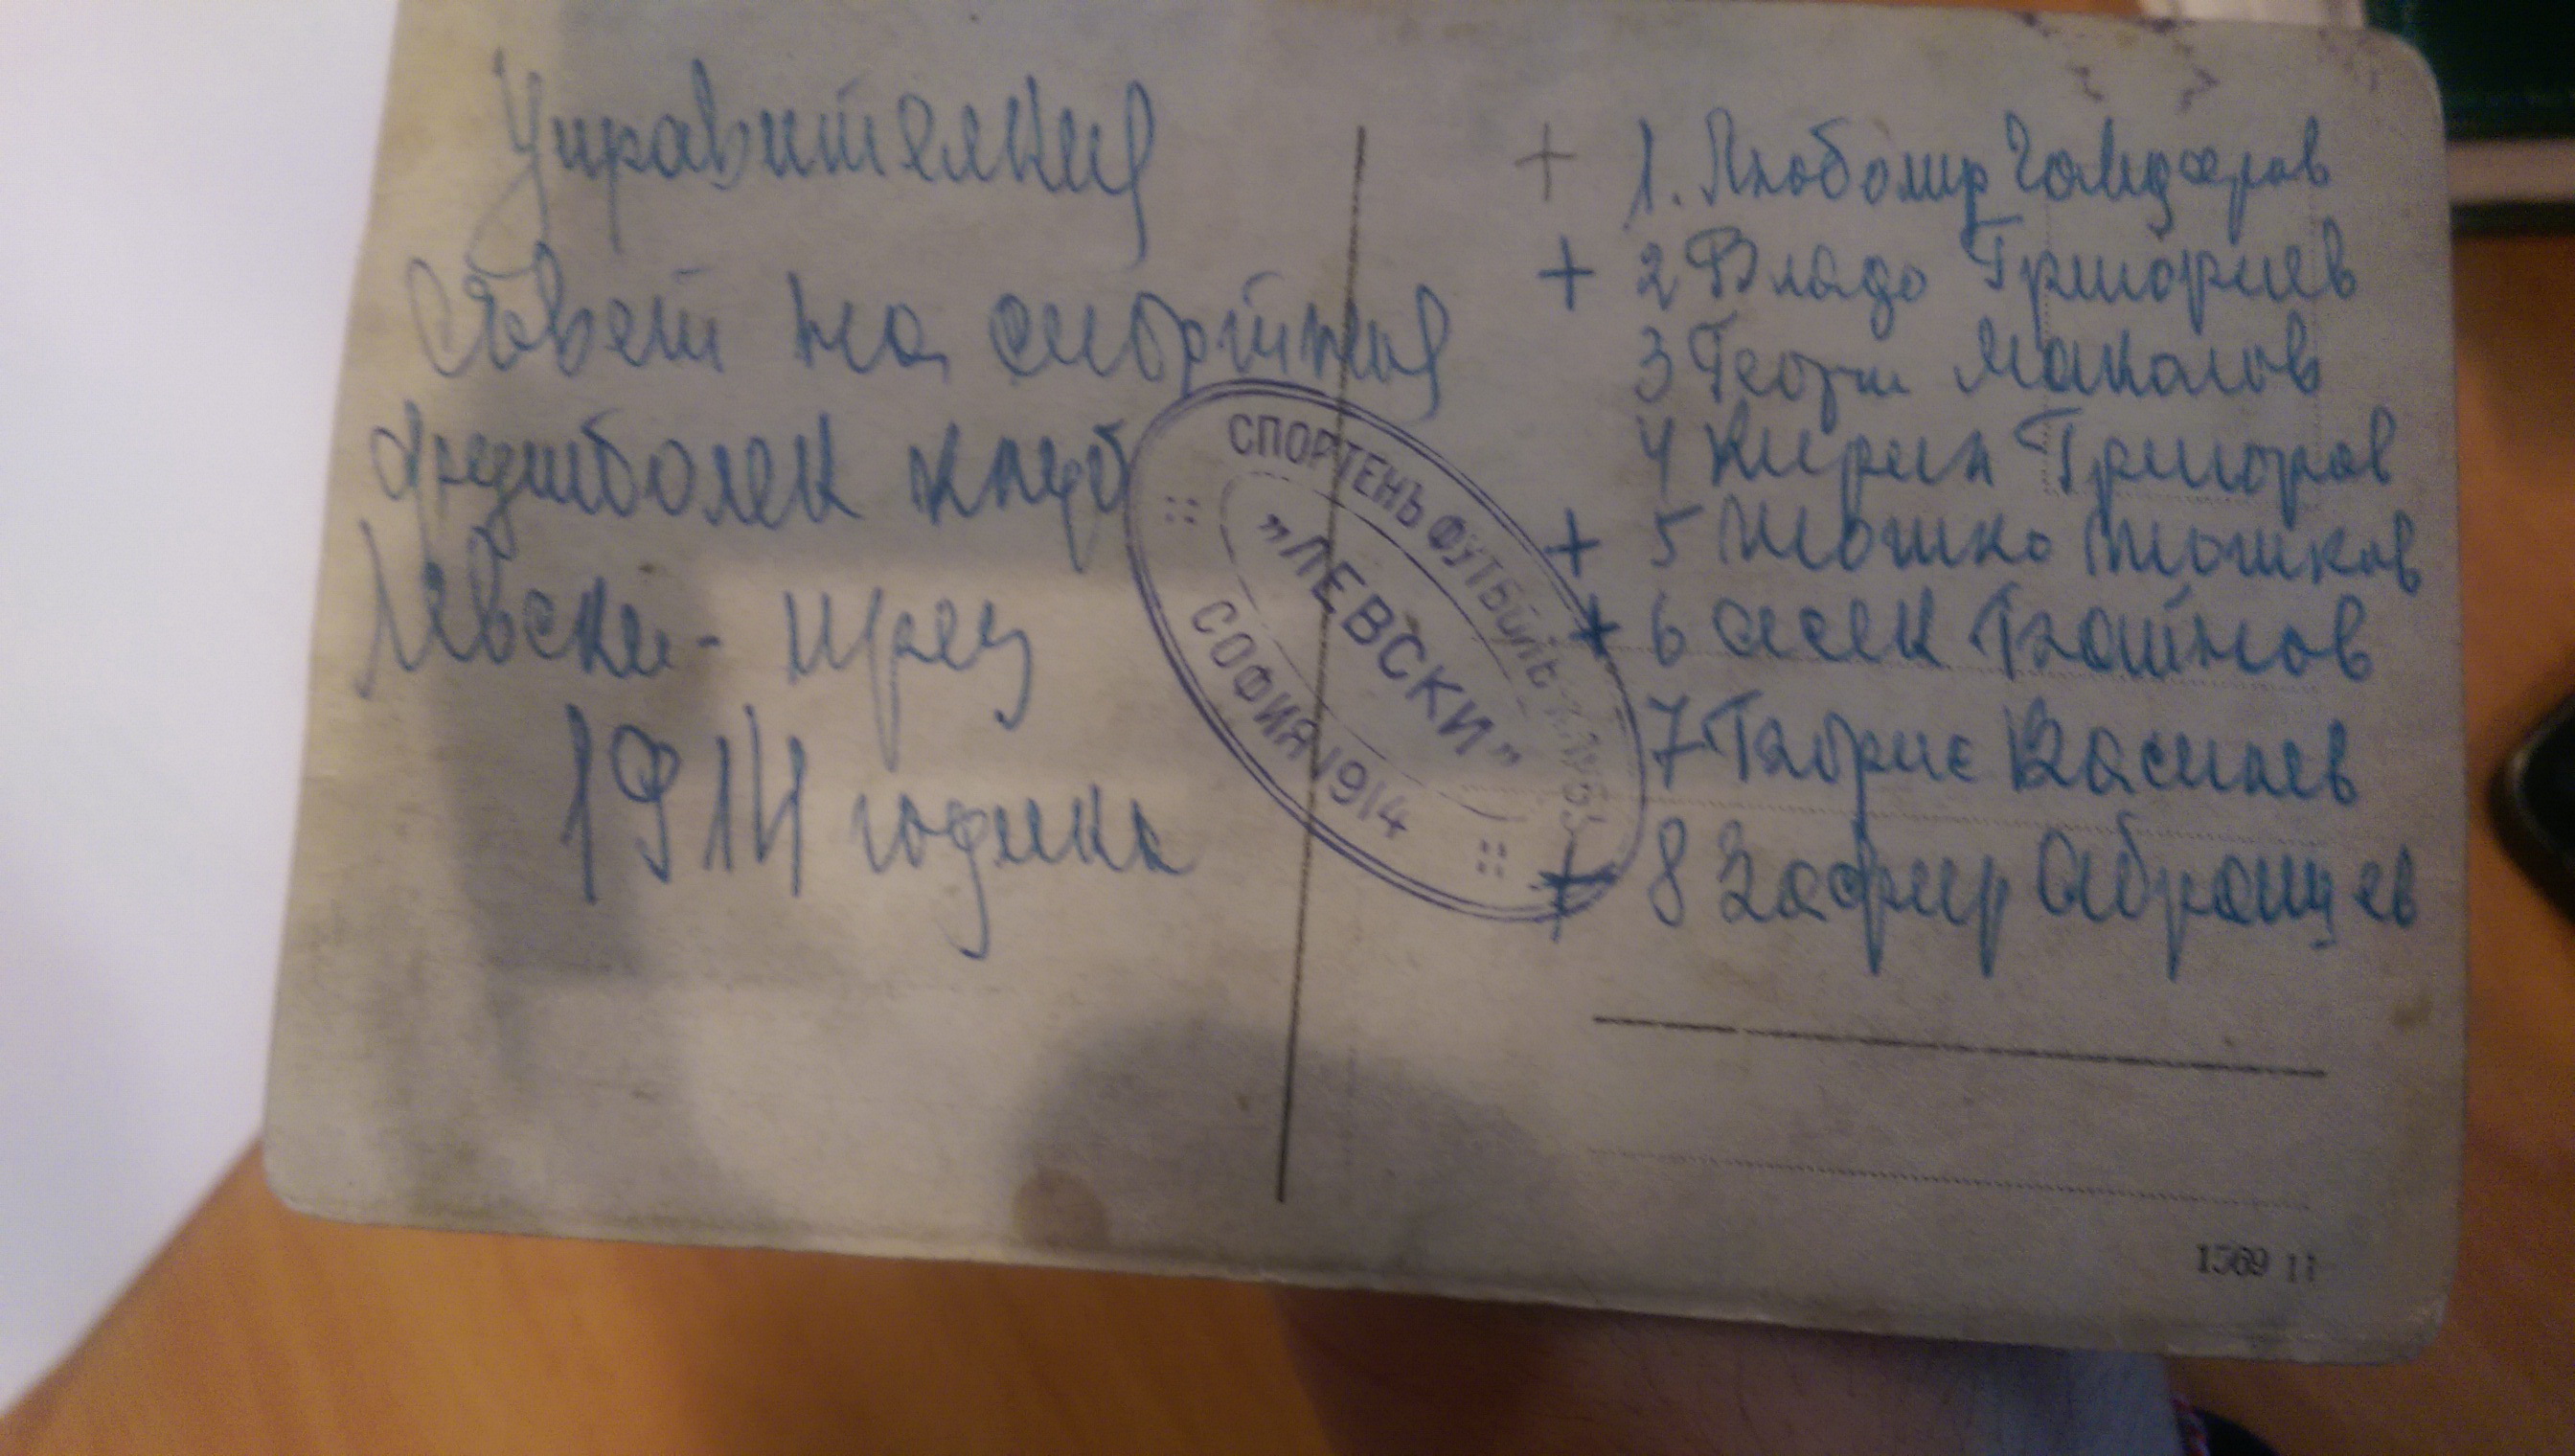 Управителния
Съвет на спортния
футболен клуб
Левски - през
1914 година
СПОРТЕНЪ ФУТБОЛЪ КЛУБЪ
„ЛЕВСКИ"
СОФИЯ 1914
+ 1. Любомир
+ 2 Владо Григориев
3 Георги Маналов
4 Кирил Григоров
+ 5 Тошко Тошков
+ 6 Асен
7 Гаврил Василев
+ 8 Зафир Абрашев
1569 11